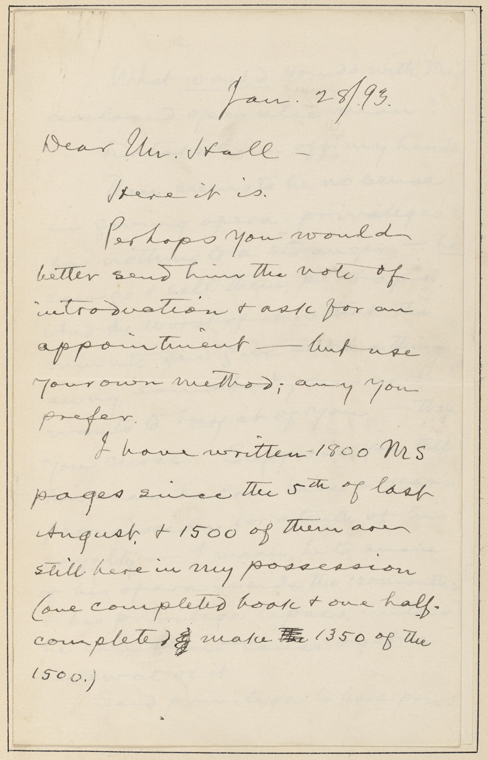 Jan. 28/93.
Dear Mr. Hall —
Here it is.
Perhaps you would
better send him the note of
introduction & ask for an
appointment — but use
your own method; any you
prefer.
I have written 1800 MS
pages since the 5th of last
August, & 1500 of them are
still here in my possession
(one completed book & one half-
completed make 1350 of the
1500.)